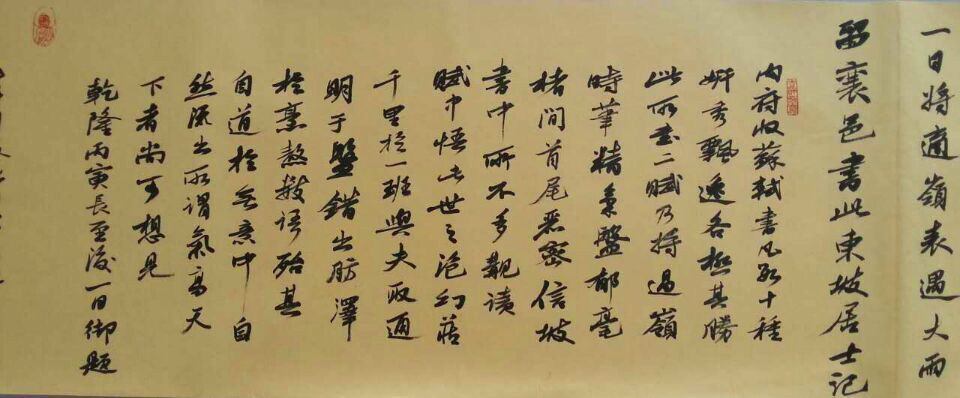 一日將適嶺表遇大雨
留襄邑書此東坡居士記
内府收蘇軾書凡數十種
妍秀飄逸各極其勝
此所書二賦乃將過嶺
時筆精氣盤郁毫
楮間首尾悉密信坡
書中所不多觀讀
賦中悟此世之泡幻藏
千里於一班與夫取通
明于盤錯出肪澤
於烹熬數語殆其
自道於無意中自
然流出所謂氣高天
下者尚可想見
乾隆丙寅長至後一日御題